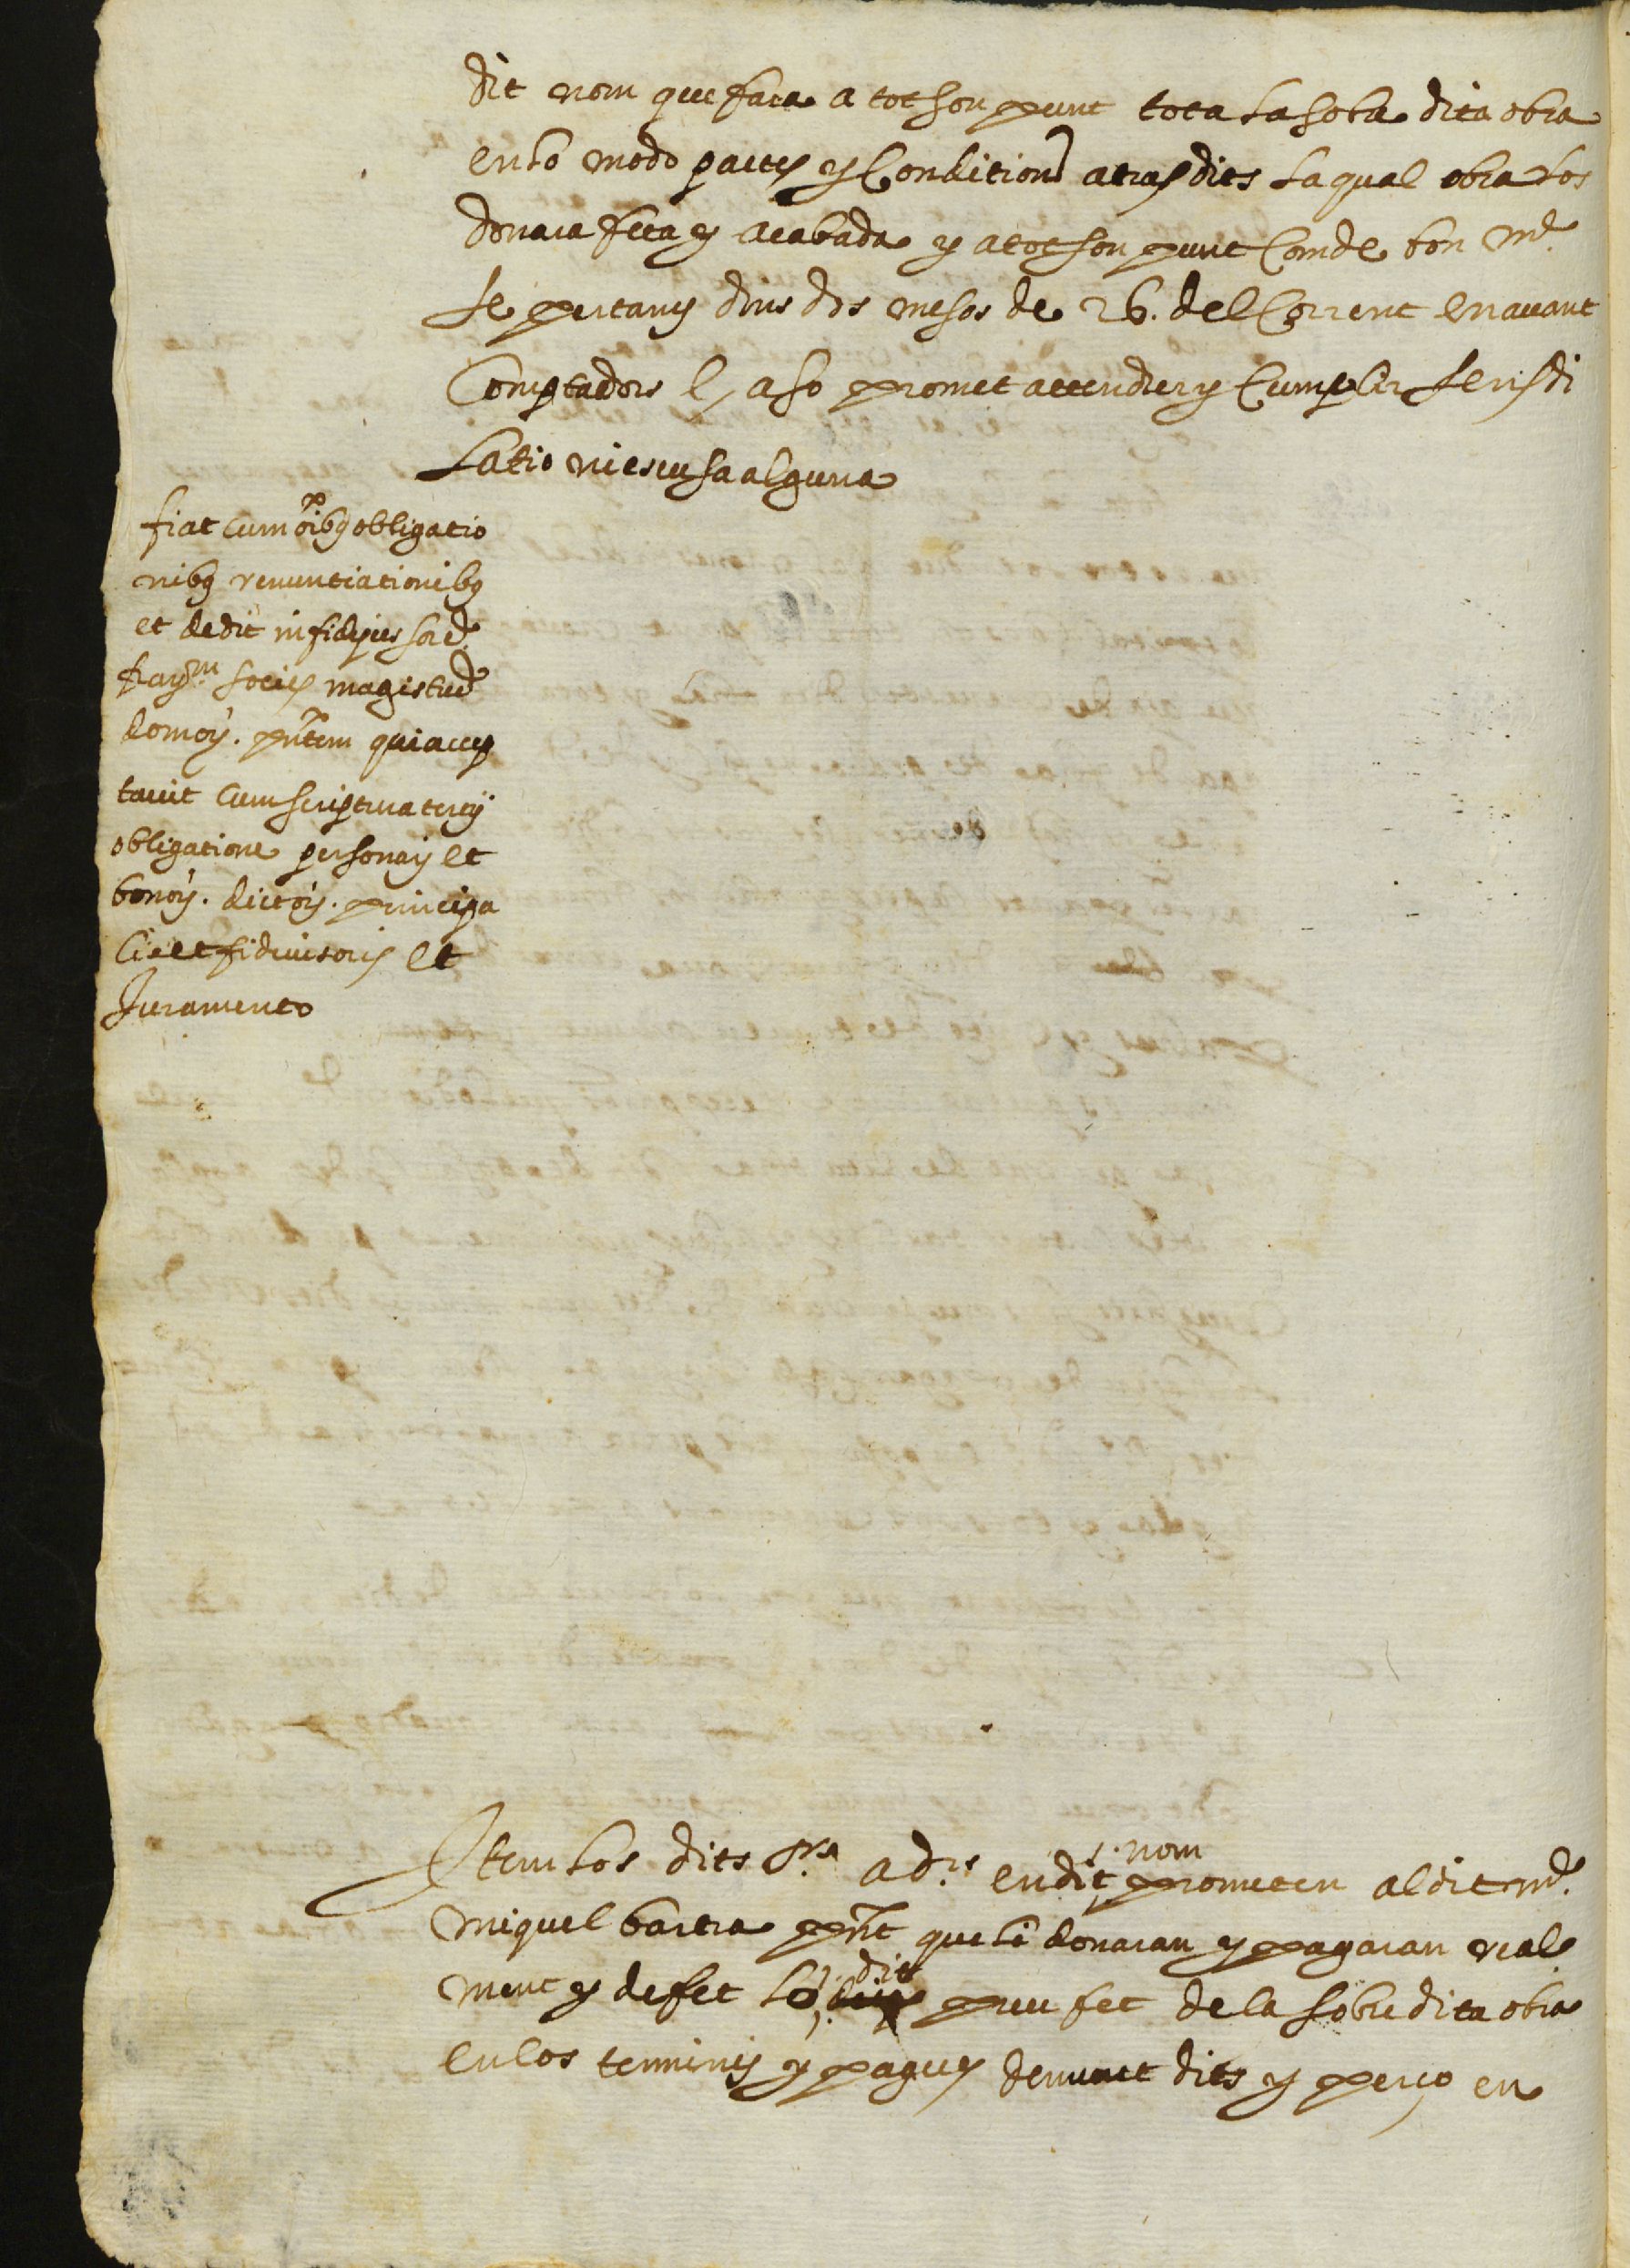 dit nom que fara a tot son punt tota la sobra dita obra
en lo modo pactes y Conditions atras dits La qual obra los
donara feta y acabada y a tot son punt Com de bon m.e
se pertany dins dos mesos de 26. del Corrent en avant
Comptadors E, aso promet attendrer y Cumplir sens di
latio ni escusa alguna
fiat cum oibq obligatio
nibq renuntiationibq
et dedit in fidejussore
magistrũ
domoȝ. pñtem qui accep
tavit cum scriptura tercij
obligatione personaȝ et
bonoȝ. dictoȝ. principa
lis et fideiusoris et
Juramento
Item los dits S.rs ad.rs en dit nom prometen al dit m.e
miquel bartra pñt que li donaran y pagaran real
ment y de fet lo dit preu fet de la sobredita obra
en los terminis y pagues demunt dits y perço en